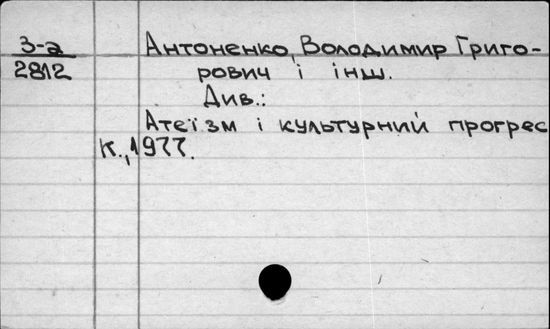 З-а
2812
Антоненко, Володимир Григо-
рович і інш.
Див.:
Атеїзм і культурний прогрес
К., 1977.